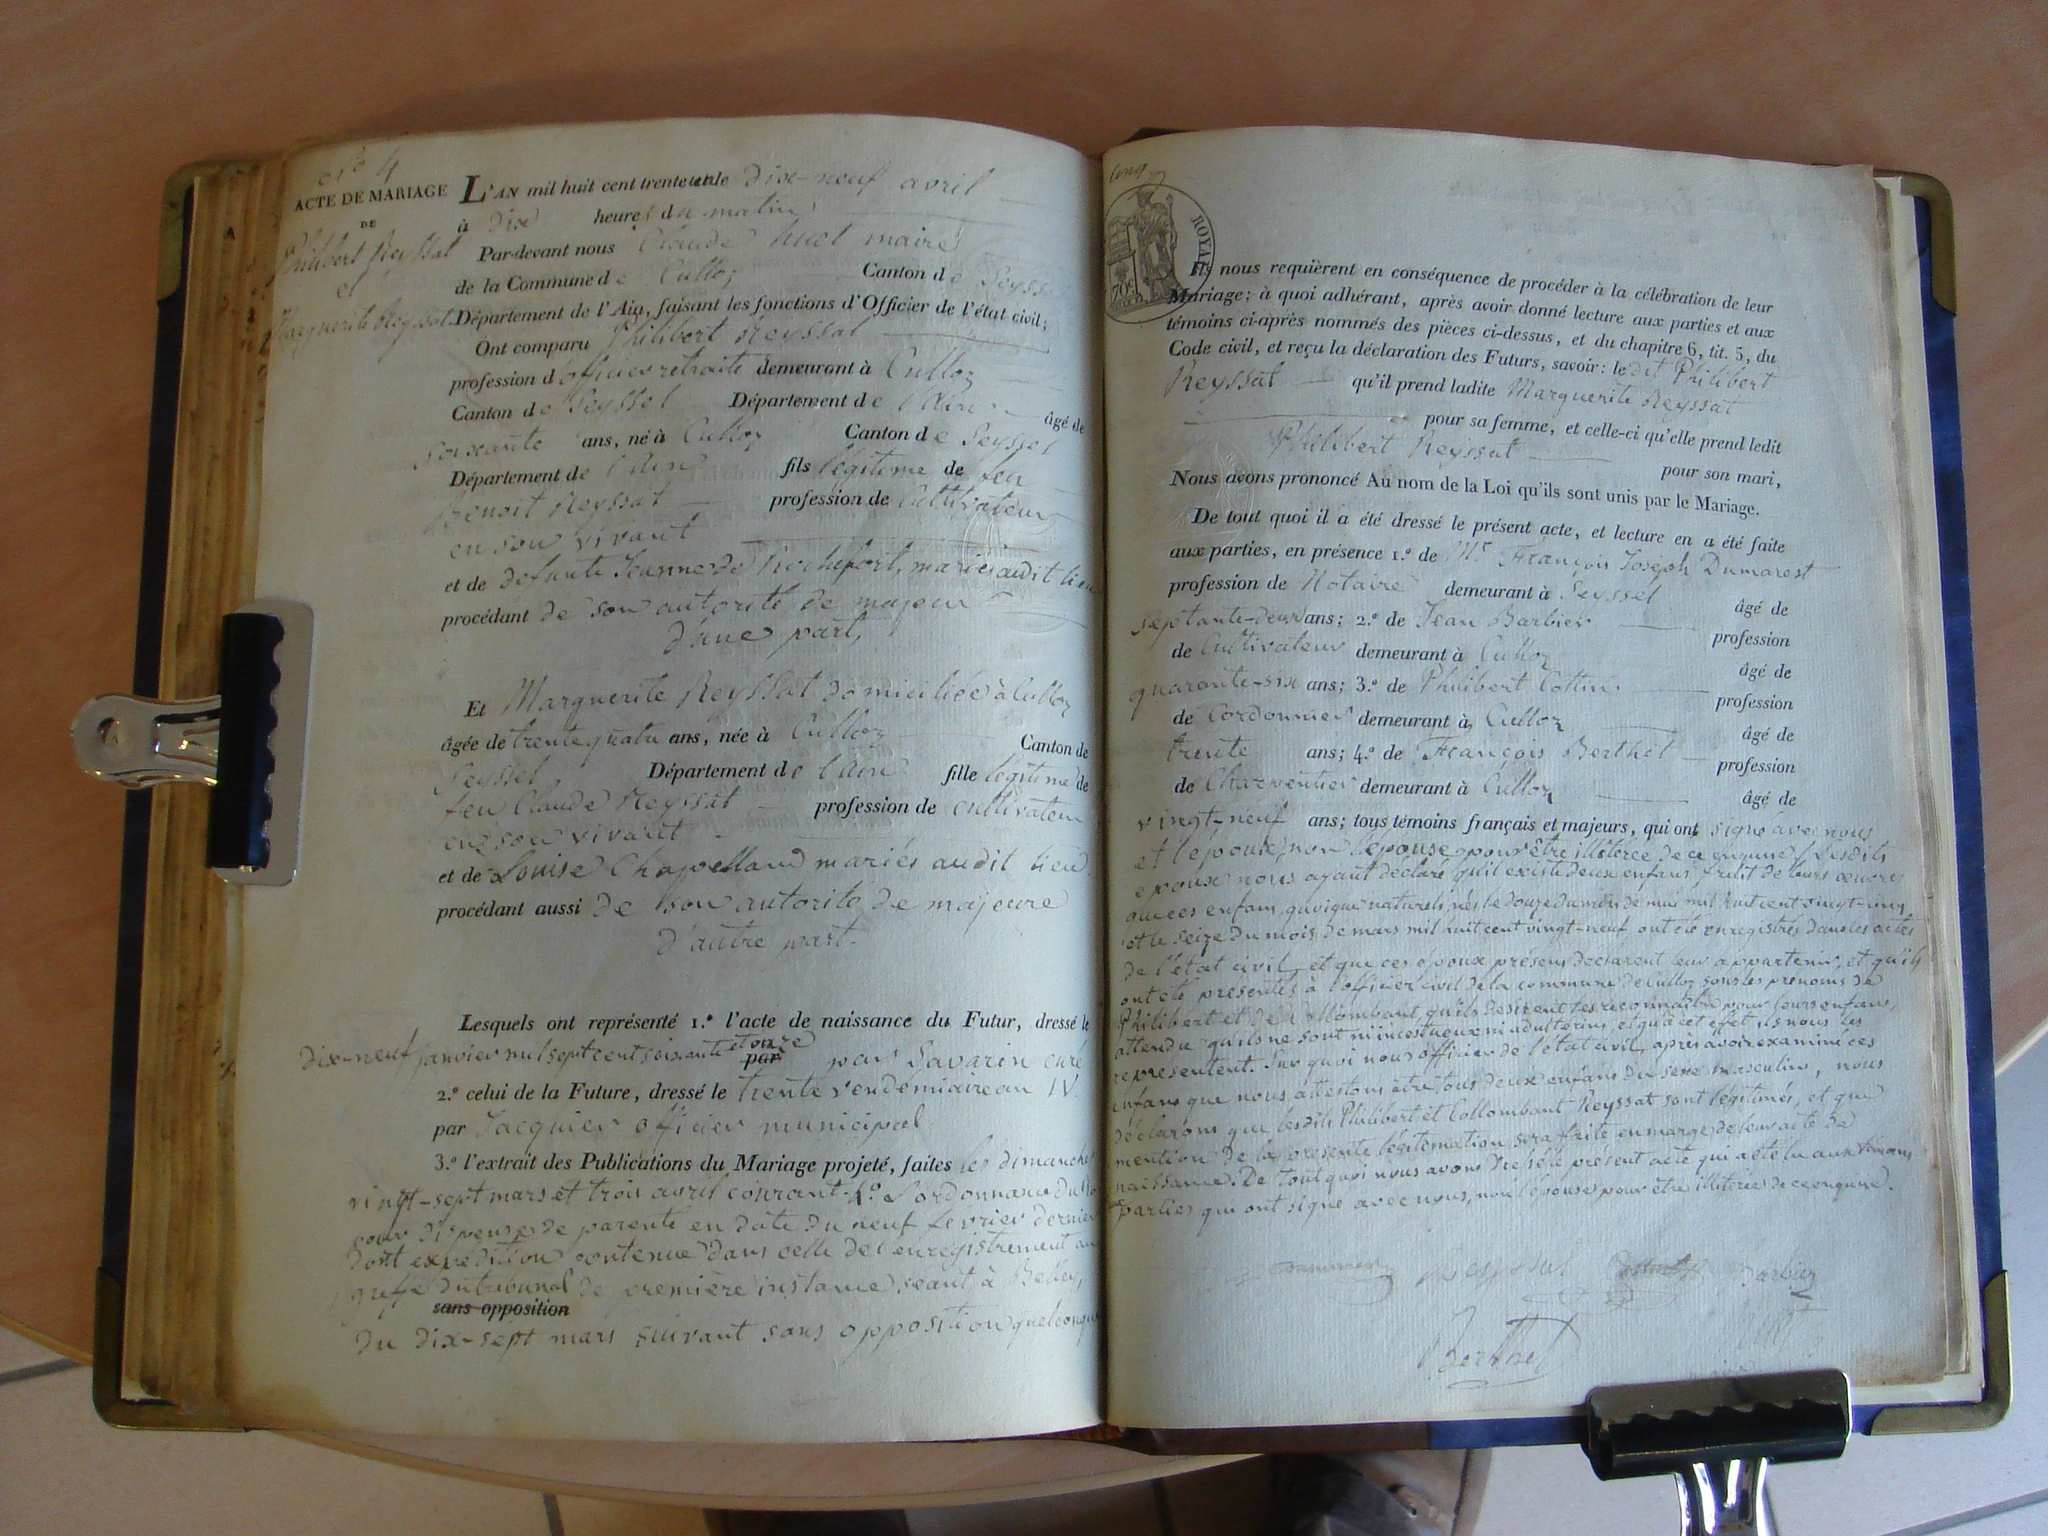 N.º 4
ACTE DE MARIAGE
DE
Philibert Reyssat
et
Marguerite Reyssat
L'AN mil huit cent trente un le dix-neuf avril
à dix heures du matin
Par-devant nous Claude maire
de la Commune de Culloz Canton de Seyssel
Département de l'Ain, faisant les fonctions d'Officier de l'état civil;
Ont comparu Philibert Reyssat
profession d'officier retraité demeurant à Culloz
Canton de Seyssel Département de l'Ain âgé de
soixante ans, né à Culloz Canton de Seyssel
Département de l'Ain fils légitime de feu
Benoit Reyssat profession de Cultivateur
en son vivant
et de defunte Jeanne de Rochefort, mariés audit lieu
procédant de son autorité de majeur
d'une part,
Et Marguerite Reyssat domiciliée à Culloz
âgée de trente quatre ans, née à Culloz Canton de
Seyssel, Département de l'Ain fille légitime de
feu Claude Reyssat profession de cultivateur
en son vivant
et de Louise Chapelland mariés audit lieu
procédant aussi de son autorité de majeure
d'autre part.
Lesquels ont représenté 1.º l'acte de naissance du Futur, dressé le
dix-neuf janvier mil sept cent soixante et onze par par Savarin curé
2.º celui de la Future, dressé le trente vendemiaire an IV.
par Jacquier officier municipal
3.º l'extrait des Publications du Mariage projeté, faites les dimanches
vingt-sept mars et trois avril courant. 4.º L'ordonnance du Roi
pour dispense de parenté en date du neuf fevrier dernier
dont expédition contenue dans celle de l'enregistrement au
greffe du tribunal de première instance seant à Belley,
sans opposition
du dix-sept mars suivant sans opposition quelconque
ROYAL
70c
Ils nous requièrent en conséquence de procéder à la célébration de leur
Mariage; à quoi adhérant, après avoir donné lecture aux parties et aux
témoins ci-après nommés des pièces ci-dessus, et du chapitre 6, tit. 5, du
Code civil, et reçu la déclaration des Futurs, savoir: le dit Philibert
Reyssat qu'il prend ladite Marguerite Reyssat
pour sa femme, et celle-ci qu'elle prend ledit
Philibert Reyssat pour son mari,
Nous avons prononcé Au nom de la Loi qu'ils sont unis par le Mariage.
De tout quoi il a été dressé le présent acte, et lecture en a été faite
aux parties, en présence 1.º de Mr François Joseph Dumarest
profession de Notaire demeurant à Seyssel âgé de
septante-deux ans; 2.º de Jean Barbier profession
de Cultivateur demeurant à Culloz âgé de
quarante-six ans; 3.º de Philibert Cottin profession
de Cordonnier demeurant à Culloz âgé de
trente ans; 4.º de François Berthet profession
de Charpentier demeurant à Culloz âgé de
vingt-neuf ans; tous témoins français et majeurs, qui ont signé avec nous
et l'époux, non l'épouse pour être illitérée de ce enquise. Lesdits
epoux nous ayant déclaré qu'il existe deux enfans fruit de leurs oeuvres
que ces enfans, quoique naturels, nés le douze du mois de mai mil huit cent vingt-cinq
et le seize du mois de mars mil huit cent vingt-neuf ont été enregistrés dans les actes
de l'état civil, et que ces époux présens déclarent leur appartenir, et qu'ils
ont été presentés à l'officier civil de la commune de Culloz sous les prénoms de
Philibert et de Collombant, qu'ils desirent les reconnaitre pour leurs enfans,
attendu qu'ils ne sont ni incestueux ni adulterins, et qu'à cet effet ils nous les
représentent. Sur quoi nous officier de l'état civil, après avoir examiné ces
enfans que nous attestons être tous deux enfans du sexe masculin, nous
déclarons que lesdits Philibert et Collombant Reyssat sont légitimés, et que
mention de la presente légitimation sera faite en marge de leur acte de
naissance. De tout quoi nous avons rédigé le présent acte qui a été lu aux témoins
parties qui ont signé avec nous, non l'épouse pour être illitérée de ce enquise.
Dumarest Reyssat Barbier
Berthet